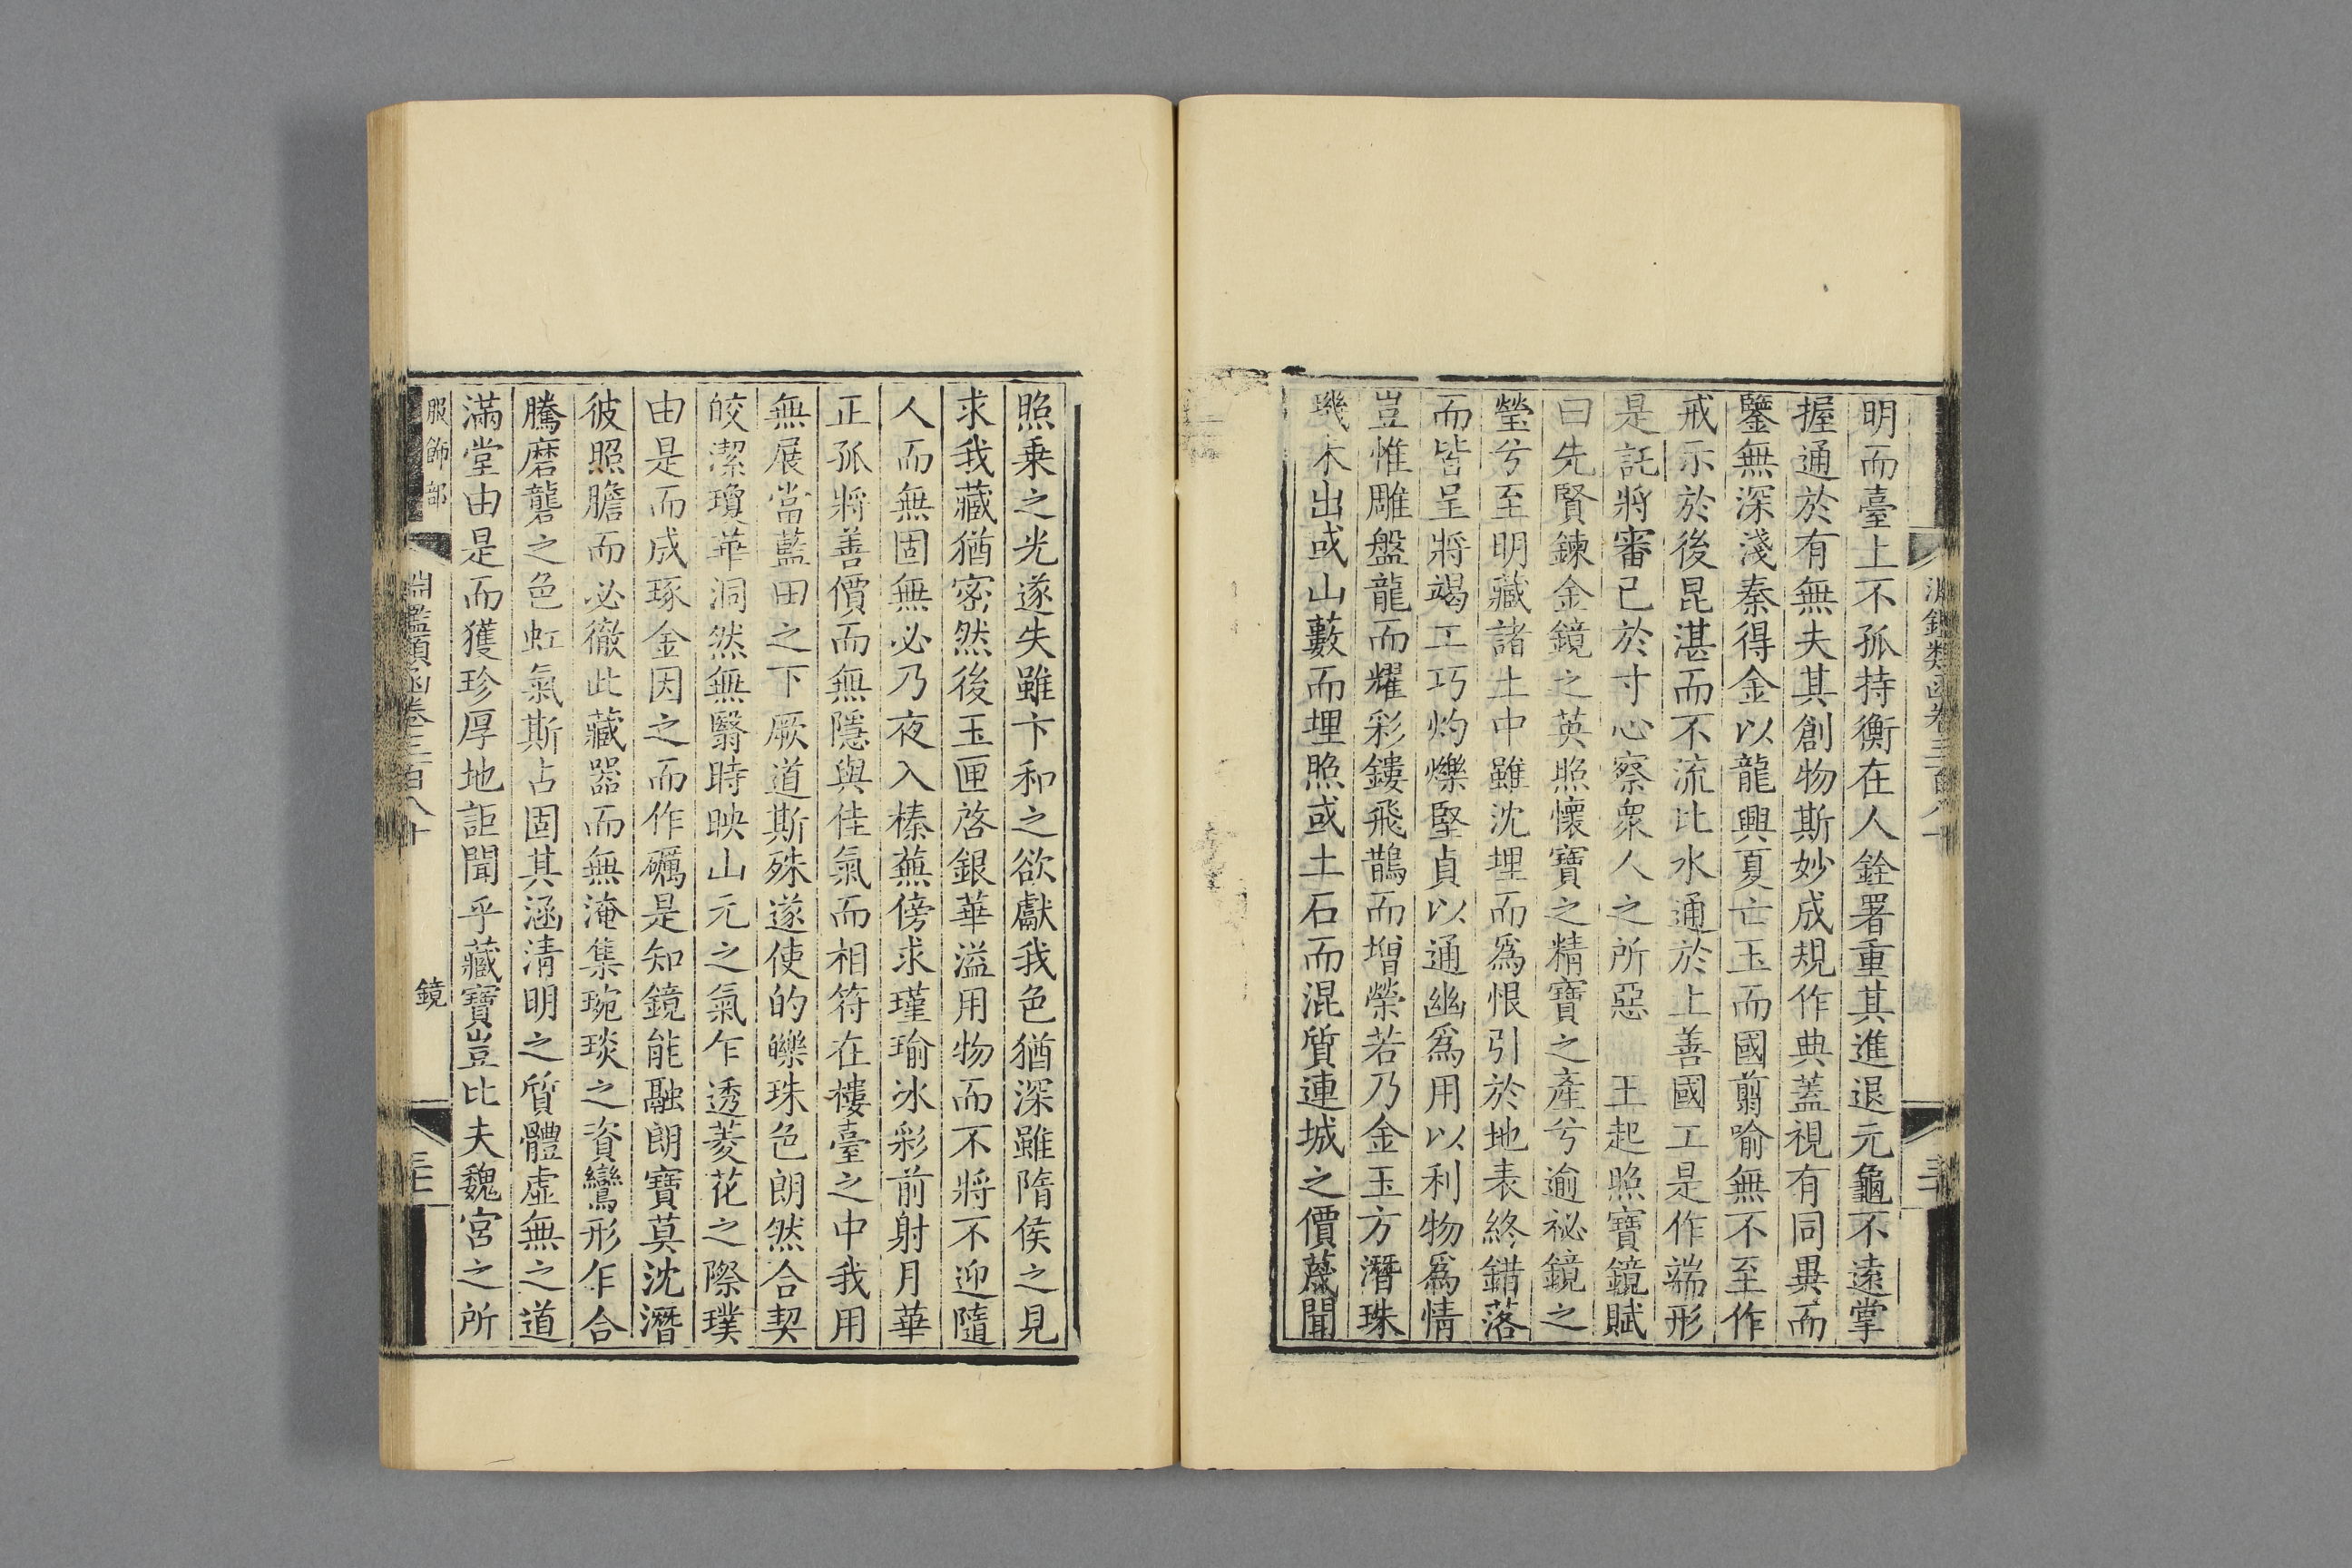 明而臺上不孤持衡在人銓署重其進退元龜不遠掌
握通於有無夫其創物斯妙成規作典蓋視有同異而
鑒無深淺秦得金以龍興夏亡玉而國翦喻無不至作
戒示於後昆湛而不流比水通於上善國工是作端形
是託將審已於寸心察衆人之所惡 王起照寶鏡賦
曰先賢鍊金鏡之英照懷寶之精寶之產兮逾祕鏡之
瑩兮至明藏諸土中雖沈埋而爲恨引於地表終錯落
而皆呈將竭工巧灼爍堅貞以通幽爲用以利物爲情
豈惟雕盤龍而耀彩鏤飛鵲而增榮若乃金玉方潛珠
璣未出或山藪而埋照或土石而混質連城之價蔑聞
照乗之光遂失雖卞和之欲獻我色猶深雖隋侯之見
求我藏猶密然後玉匣啓銀華溢用物而不將不迎隨
人而無固無必乃夜入榛蕪傍求瑾瑜冰彩前射月華
正孤將善價而無隱與佳氣而相符在樓臺之中我用
無展當藍田之下厥道斯殊遂使的皪珠色朗然合契
皎潔瓊華洞然無翳時映山元之氣乍透菱花之際璞
由是而成琢金因之而作礪是知鏡能融朗寶莫沈潛
彼照膽而必徹此藏器而無淹集琬琰之資鸞形乍合
騰磨礱之色虹氣斯占固其涵清明之質體虛無之道
滿堂由是而獲珍厚地詎聞乎藏寶豈比夫魏宮之所
服飾部 淵鑑類函卷三百八十 鏡